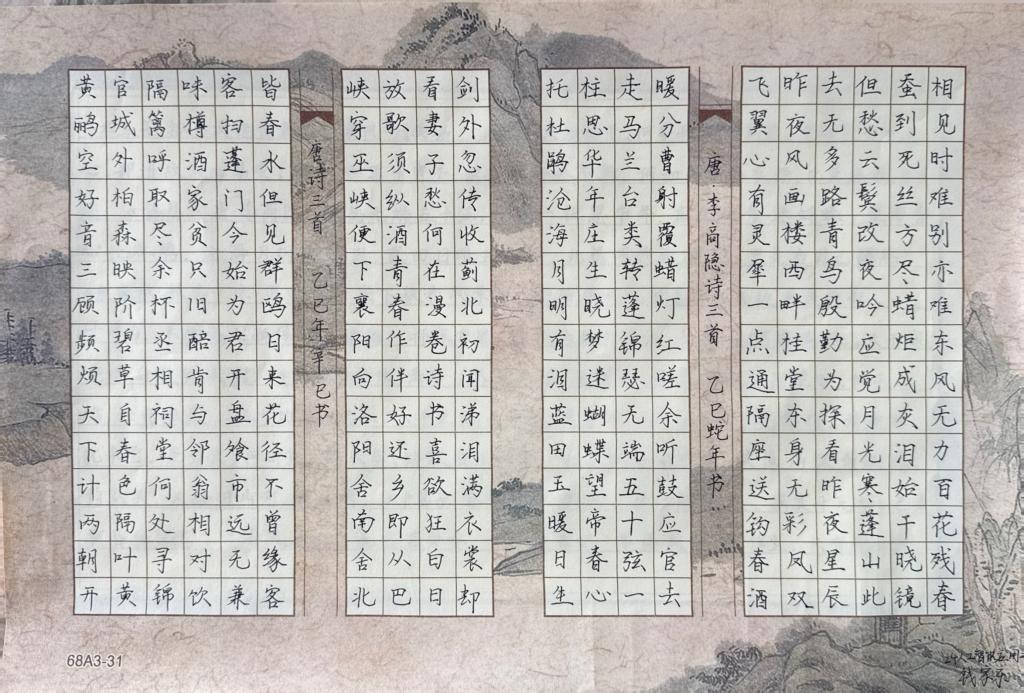 相见时难别亦难东风无力百花残春
蚕到死丝方尽蜡炬成灰泪始干晓镜
但愁云鬓改夜吟应觉月光寒蓬山此
去无多路青鸟殷勤为探看昨夜星辰
昨夜风画楼西畔桂堂东身无彩凤双
飞翼心有灵犀一点通隔座送钩春酒
唐·李商隐诗三首 乙巳蛇年书
暖分曹射覆蜡灯红嗟余听鼓应官去
走马兰台类转蓬锦瑟无端五十弦一
柱思华年庄生晓梦迷蝴蝶望帝春心
托杜鹃沧海月明有泪蓝田玉暖日生
剑外忽传收蓟北初闻涕泪满衣裳却
看妻子愁何在漫卷诗书喜欲狂白日
放歌须纵酒青春作伴好还乡即从巴
峡穿巫峡便下襄阳向洛阳舍南舍北
唐诗三首 乙巳年辛巳书
皆春水但见群鸥日来花径不曾缘客
客扫蓬门今始为君开盘飧市远无兼
味樽酒家贫只旧醅肯与邻翁相对饮
隔篱呼取尽余杯丞相祠堂何处寻锦
官城外柏森映阶碧草自春色隔叶黄
黄鹂空好音三顾频烦天下计两朝开
68A3-31
24人工智能应用